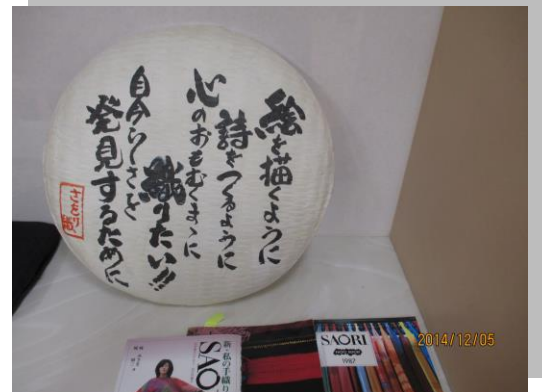 絵を描くように
詩をつくるように
心のおもむくまゝに
織りたい!!
自分らしさを
発見するために
さをり
新・私の手織り
SAO
SAORI
1987
2014/12/05